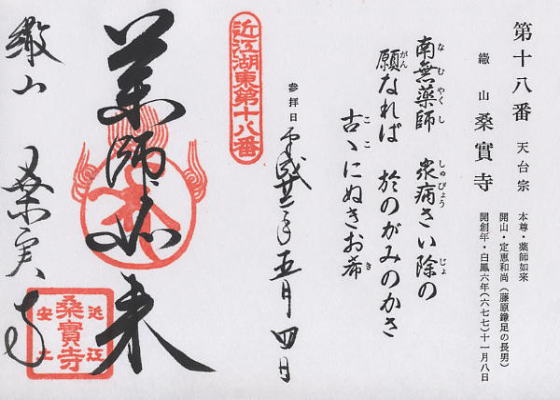 第十八番 天台宗
繖山 桑實寺
本尊・薬師如来
開山・定恵和尚(藤原鎌足の長男)
開創年・白鳳六年(六七七)十一月八日
南無薬師 衆病さい除の
なむやくし しゅびょう じょ
願なれば 於のがみのかさ
がん
古〻にぬきお希
ここ き
参拝日 平成廿二年五月四日
近江湖東第十八番
薬師如来
繖山 桑実寺
近江
桑實寺
安土